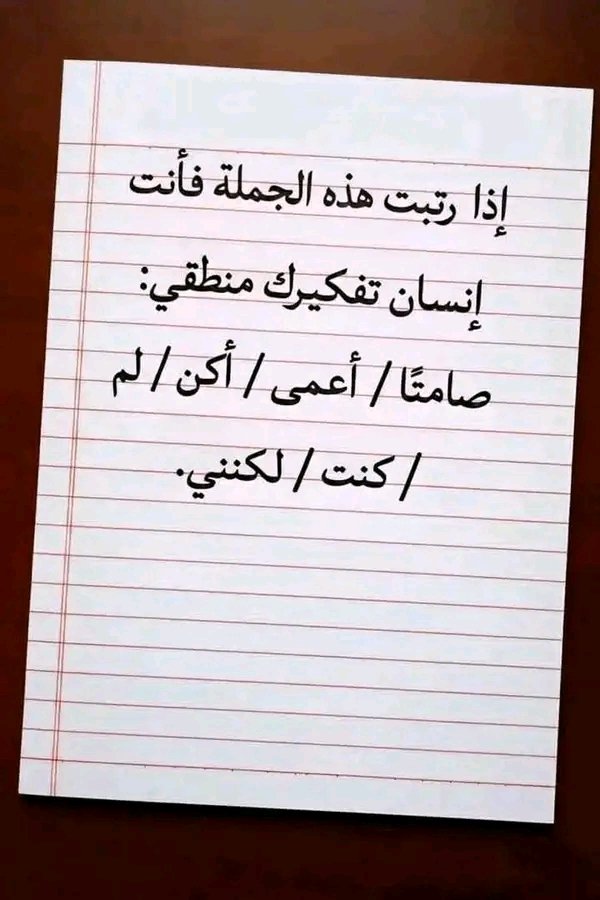 إذا رتبت هذه الجملة فأنت
إنسان تفكيرك منطقي:
صامتًا / أعمى / أكن / لم
/ كنت / لكنني.